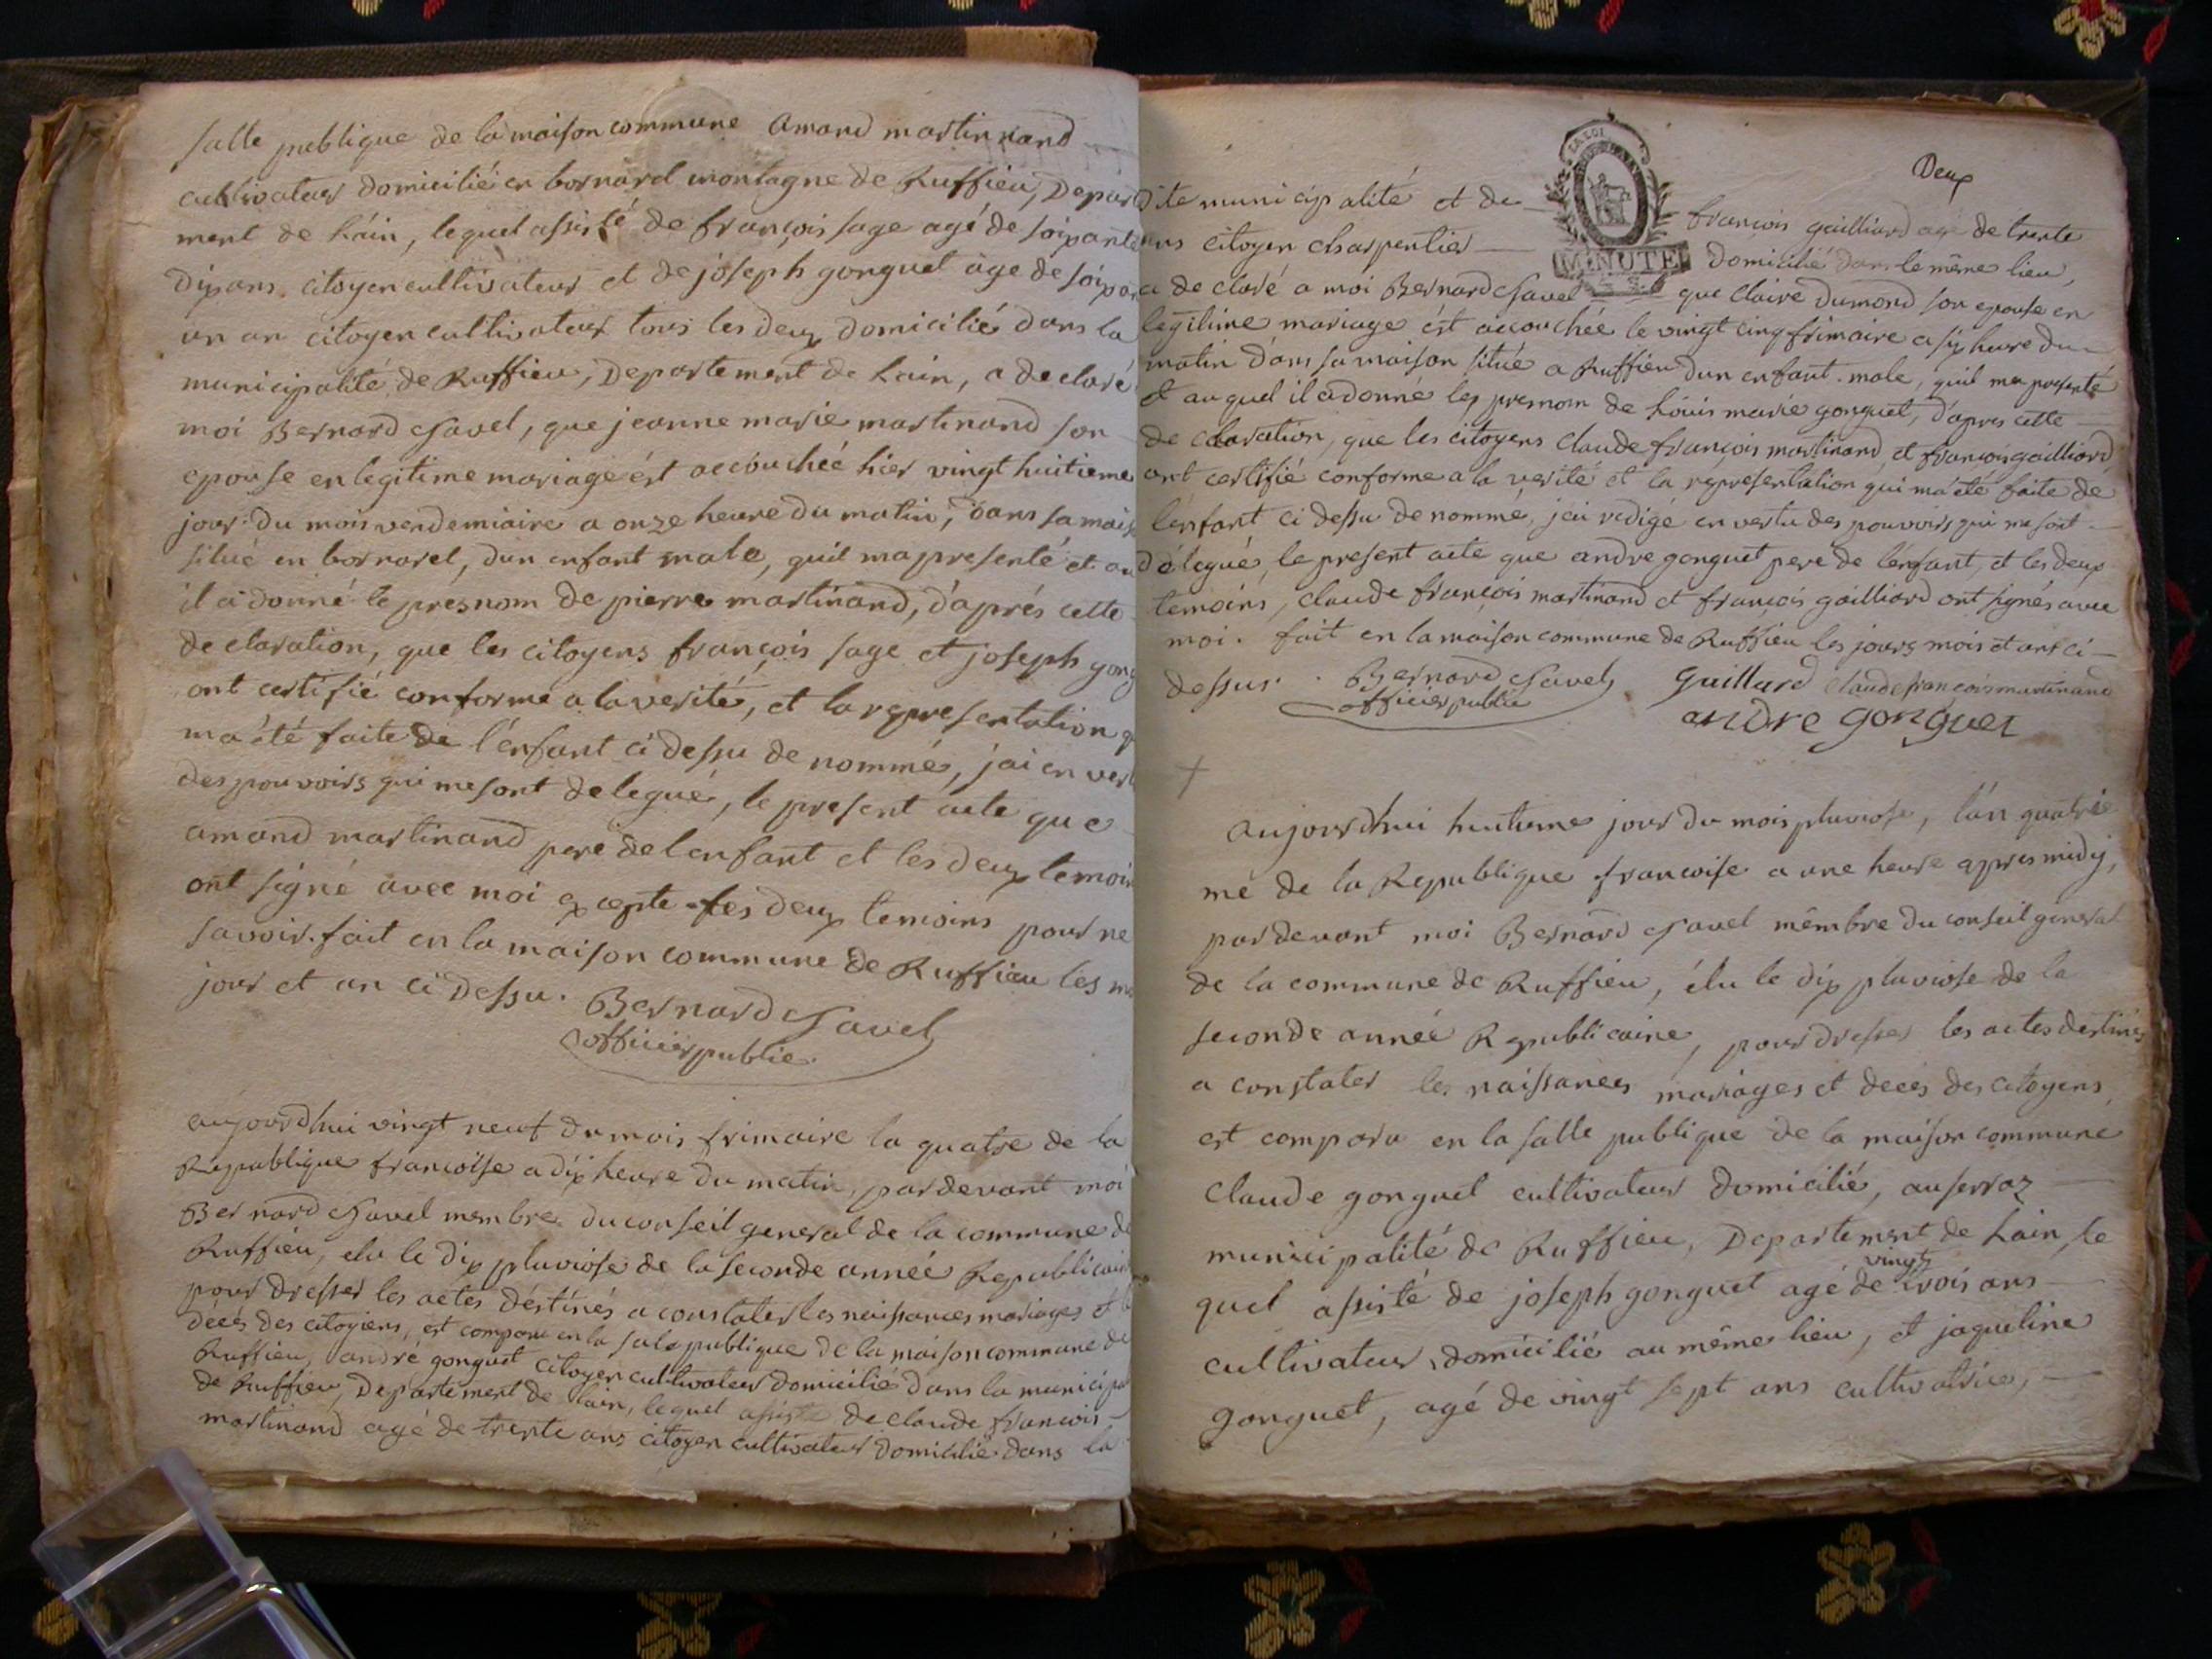 salle publique de la maison commune amand martinnand
cultivateur domicilié en bornarel montagne de Ruffieu, Depart
ment de lain, lequel assisté de françois sage agé de soixante
dix ans citoyen cultivateur et de joseph gonguet age de soixan
un an citoyen cultivateur tous les deux domicilié dans la
municipalité de Ruffieu, Departement de lain, a declaré
moi Bernard Savel, que jeanne marie martinand son
epouse en legitime mariage ést accouchéé hier vingt huitieme
jour du mois vendemiaire a onze heure du matin, dans sa mais
situé en bornarel, dun enfant male, quil ma presenté et au
il a donné le presnom de pierre martinand, d'aprés cette
declaration, que les citoyens françois sage et joseph gong
ont certifié conforme a la verité, et la representation q
ma été faite de l'énfant ci dessu denommé, j'ai en vert
des pouvoirs qui me sont delegué, le present acte que
amand martinand pere de lenfant et les deux temoin
ont signé avec moi excepte les deux temoins pour ne
savoir. fait en la maison commune de Ruffieu les mo
jour et an ci dessu. Bernard Savel
officier public
aujourdhui vingt neuf du mois frimaire la quatre de la
Republique francoise a dix heure du matin, pardevant moi
Bernard Savel membre du conseil general de la commune de
Ruffieu, elu le dix pluviose de la seconde année Republicain
pour dresser les actes déstinés a constater les naissances mariages et
décés des citoyiens, est comparu en la sale publique de la maison commune de
Ruffieu, andré gonguet citoyen cultivateur domicilié dans la municipal
de Ruffieu, Departement de lain, lequel assiste de claude francois
martinand agé de trente ans citoyen cultivateur domicilié dans la
Deux
LA LOI
MINUTE
dite municipalité et de françois gailliard agé de trente
ans citoyen charpentier domicilié dans le même lieu,
a declaré a moi Bernard Savel que claire Dumond son epouse en
legitime mariage ést accouchée le vingt cinq frimaire a six heure du
matin dans sa maison situé a Ruffieu dun enfant male, quil ma presenté
et auquel il a donné les presnom de loüis marie gonguet, d'apres cette
declaration, que les citoyens claude françois martinand, et françois gailliard
ont certifié conforme a la verité et la representation qui ma été faite de
l'énfant ci dessu denommé, j'ai redigé en vertu des pouvoirs qui me sont
délegués, le present acte que andre gonguet pere de l'énfant, et les deux
temoins, claude françois martinand et françois gailliard ont signés avec
moi. fait en la maison commune de Ruffieu les jours mois et ans ci
dessus. Bernard Savel Guillard claude francois martinand
officier public andre gonguet
aujourdhui huitieme jour du mois pluviose, l'an quatrie
me de la Republique francoise a une heure apres midy,
pardevant moi Bernard Savel mêmbre du conseil general
de la commune de Ruffieu, élu le dix pluviose de la
seconde année Republicaine, pour dresser les actes destinés
a constater les naissances mariages et decés des citoyens,
est comparu en la salle publique de la maison commune
claude gonguet cultivateur domicilié, au serraz
municipalité de Ruffieu, Departement de lain, le
vingt
quel assisté de joseph gonguet agé de trois ans
cultivateur, domicilié au même lieu, et jaqueline
gonguet, agé de vingt sept ans cultivatrice,